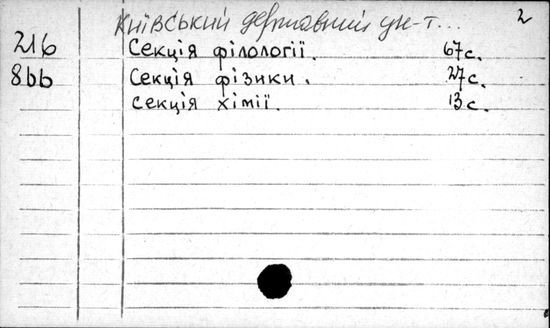 Київський державний ун-т... 2
216 Секція філології. 67с.
8вв Секція фізики. 27с.
Секція хімії. 13с.